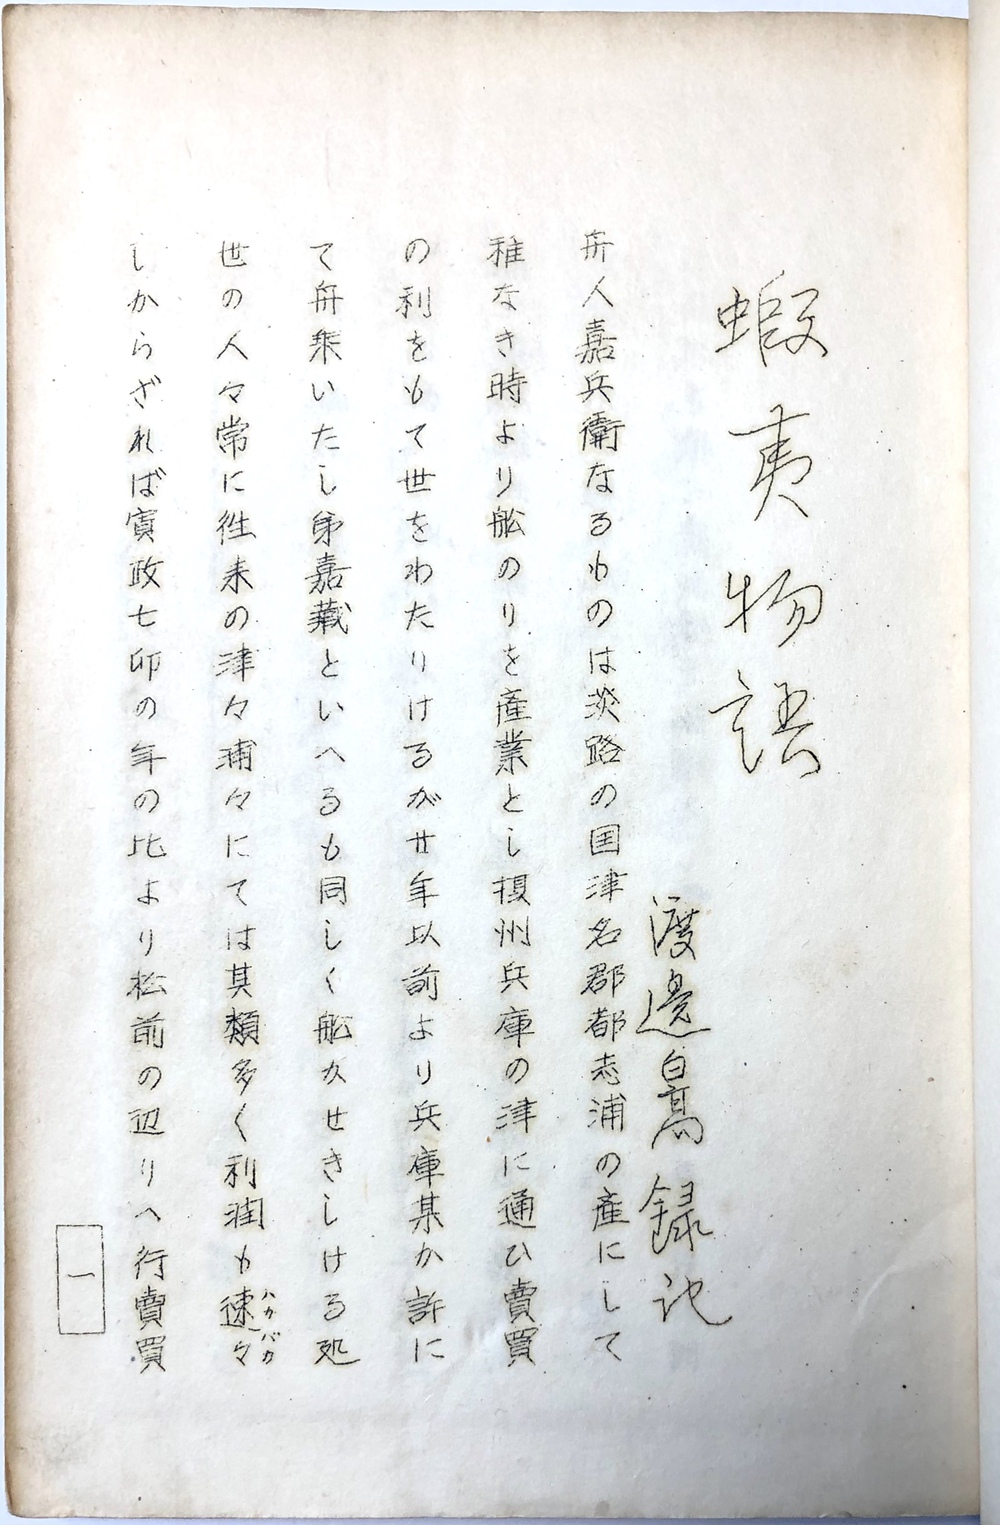 蝦夷物語
渡邉暠録記
舟人嘉兵衛なるものは淡路の国津名郡都志浦の産にして
稚なき時より舩のりを産業とし摂州兵庫の津に通ひ賣買
の利をもて世をわたりけるが廿年以前より兵庫某か許に
て舟乗いたし弟嘉蔵といへるも同しく舩かせきしける処
世の人々常に往来の津々浦々にては其類多く利潤も速々
ハカバカ
しからざれば寛政七卯の年の比より松前の辺りへ行賣買
一